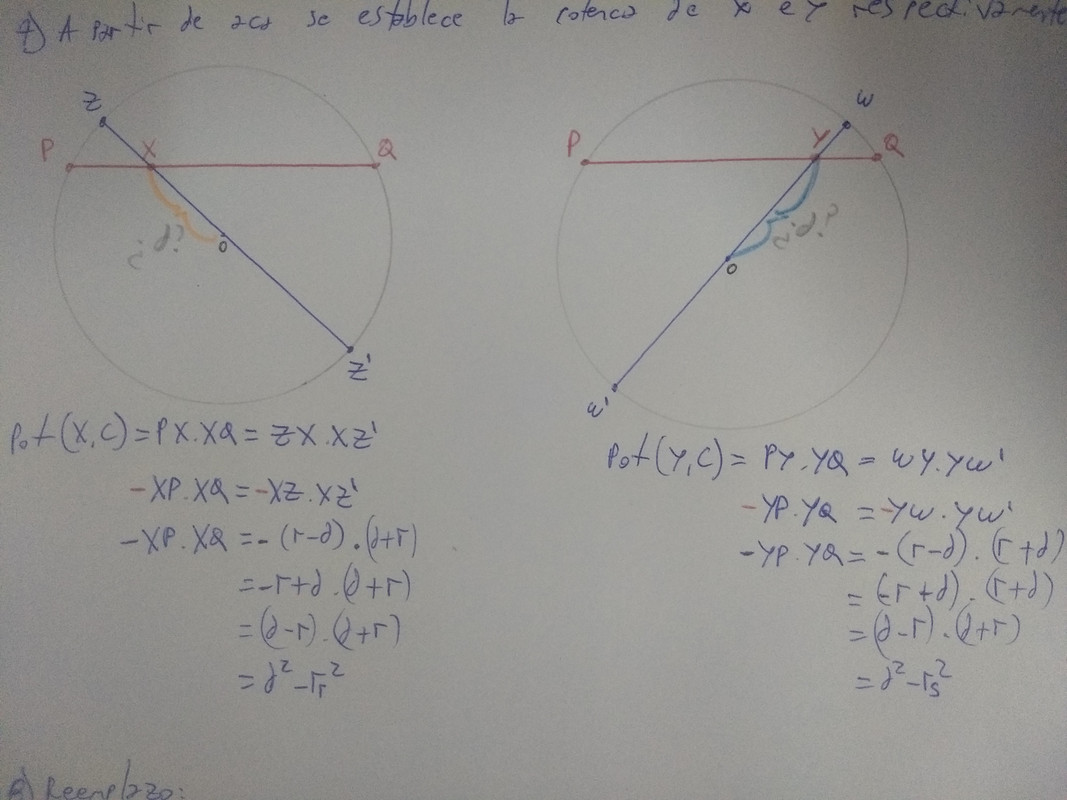 7) A partir de acá se establece la potencia de X e Y respectivamente
Z
P X Q
¿d?
O
Z'
W
P Y Q
¿d?
O
W'
Pot(X,C) = PX.XQ = ZX.XZ'
-XP.XQ = -XZ.XZ'
-XP.XQ = -(r-d).(d+r)
= -r+d.(d+r)
= (d-r).(d+r)
= d²-r₁²
Pot(Y,C) = PY.YQ = WY.YW'
-YP.YQ = -YW.YW'
-YP.YQ = -(r-d).(r+d)
= (-r+d).(r+d)
= (d-r).(d+r)
= d²-r₅²
8) Reemplazo: